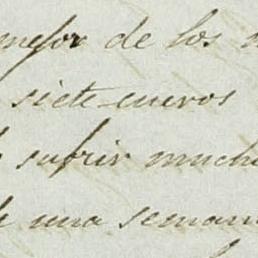 mejor de los
siete cueros
sufrir much
una seman